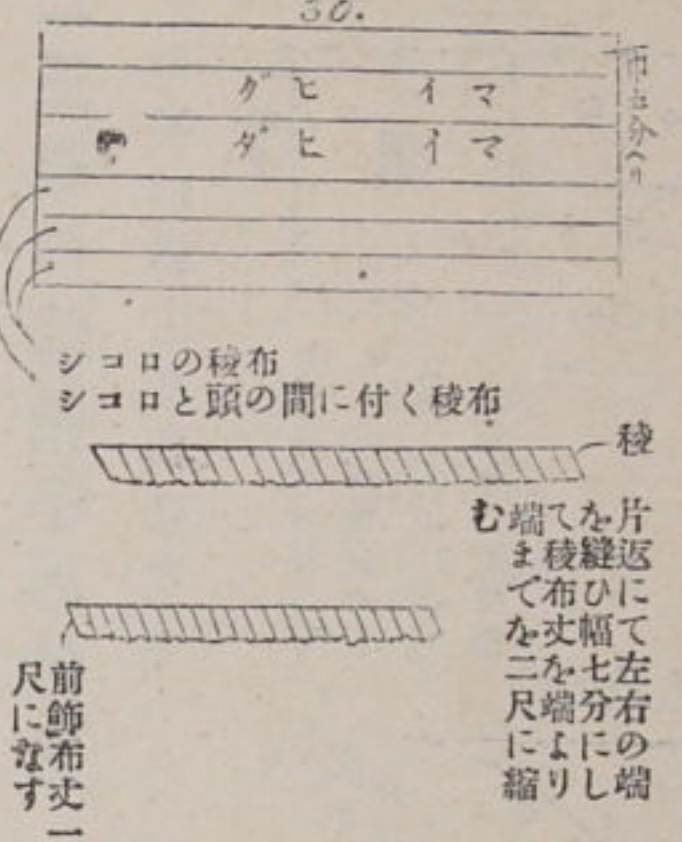 30.
マイ ヒダ
マイ ヒダ
シコロの稜布
シコロと頭の間に付く稜布
稜
片返にて左右の端
を縫ひ幅七分にし
て稜布丈を端より
端までを二尺に縮
む
前飾布丈一
尺になす